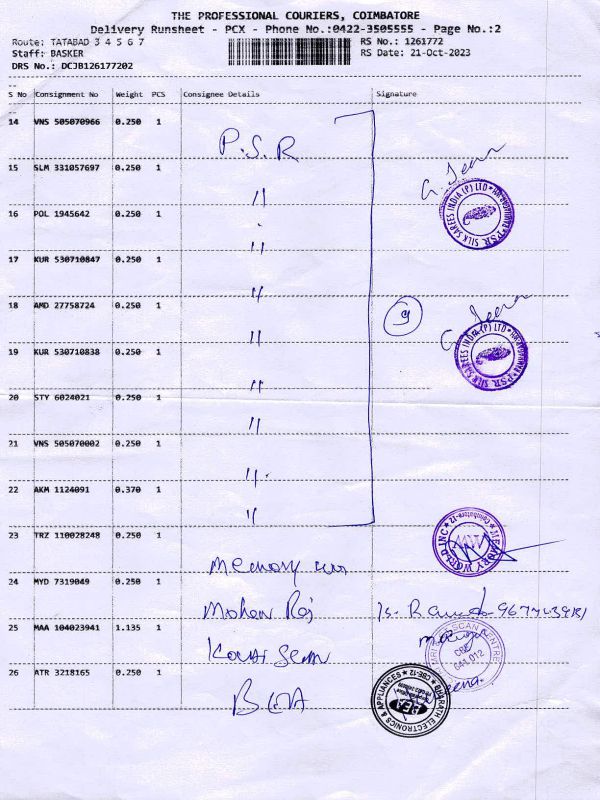 THE PROFESSIONAL COURIERS, COIMBATORE
Delivery Runsheet - PCX - Phone No.:0422-3505555 - Page No.:2
Route: TATABAD 3 4 5 6 7 RS No.: 1261772
Staff: BASKER RS Date: 21-Oct-2023
DRS No.: DCJB126177202
S No Consignment No Weight PCS Consignee Details Signature
14 VNS 505070966 0.250 1 P.S.R
15 SLM 331057697 0.250 1 "
16 POL 1945642 0.250 1 "
17 KUR 530710847 0.250 1 "
18 AMD 27758724 0.250 1 "
19 KUR 530710838 0.250 1 "
20 STY 6024021 0.250 1 "
21 VNS 505070002 0.250 1 "
22 AKM 1124091 0.370 1 "
23 TRZ 110028248 0.250 1 Memory
24 MYD 7319049 0.250 1 Mohan Raj
25 MAA 104023941 1.135 1 Kovai Scan
26 ATR 3218165 0.250 1 BEA
G. Seena
PSR SILK SAREES INDIA (P) LTD
9
G. Seena
PSR SILK SAREES INDIA (P) LTD
MEMORY WORLD INC
Coimbatore-12
SCAN CENTRE
CBE
641 012
BHARATH ELECTRONICS & APPLIANCES
CBE-12
BEA